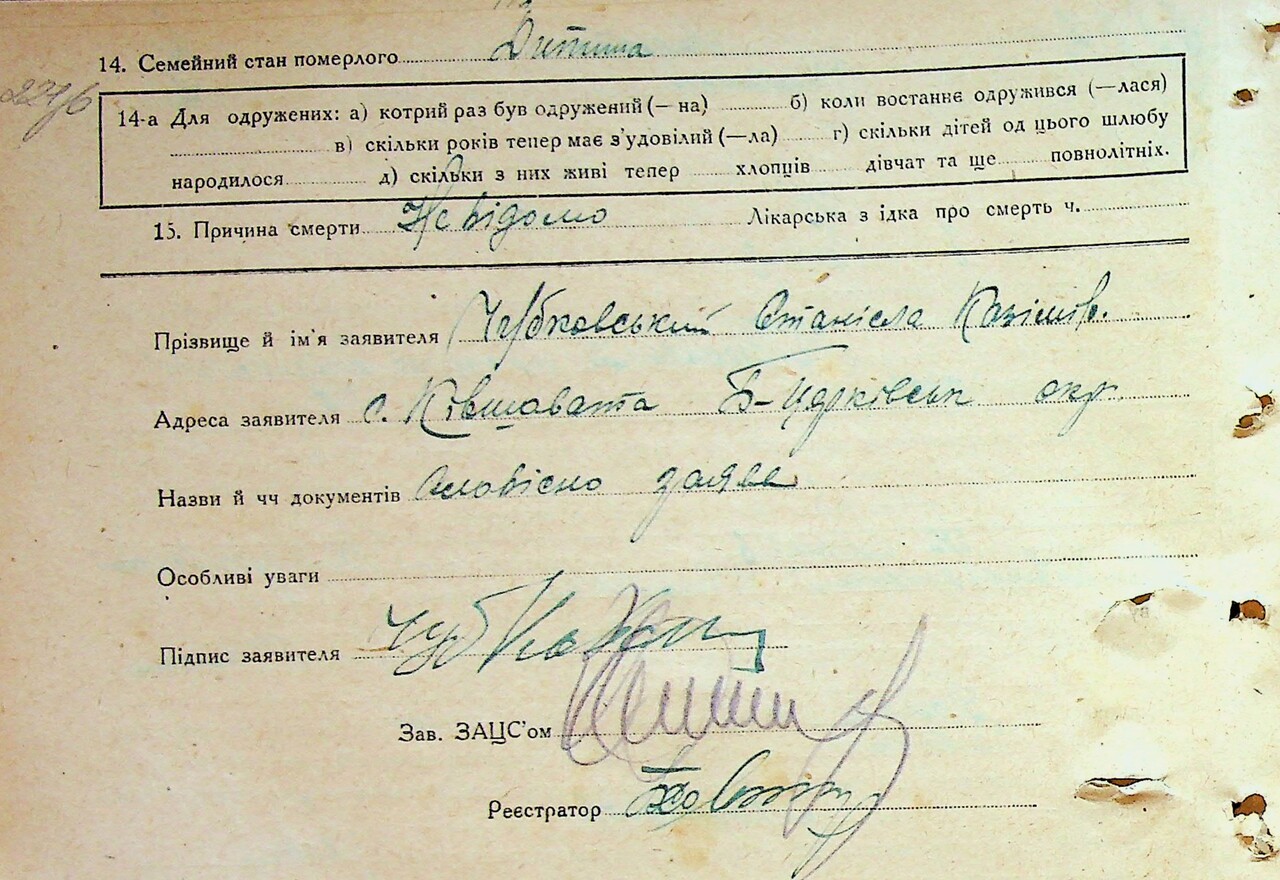 14. Семейний стан померлого Дитина
14-а Для одружених: а) котрий раз був одружений (— на) б) коли востаннє одружився (—лася)
в) скільки років тепер має з'удовілий (—ла) г) скільки дітей од цього шлюбу
народилося д) скільки з них живі тепер хлопців дівчат та ще повнолітніх.
15. Причина смерти Не відомо Лікарська з ідка про смерть ч.
Прізвище й ім'я заявителя Чубковський Станісла Казімір.
Адреса заявителя с. Ківшовата Б-Церківськ окр.
Назви й чч документів Словісно заява
Особливі уваги
Підпис заявителя
Зав. ЗАЦС'ом
Реєстратор